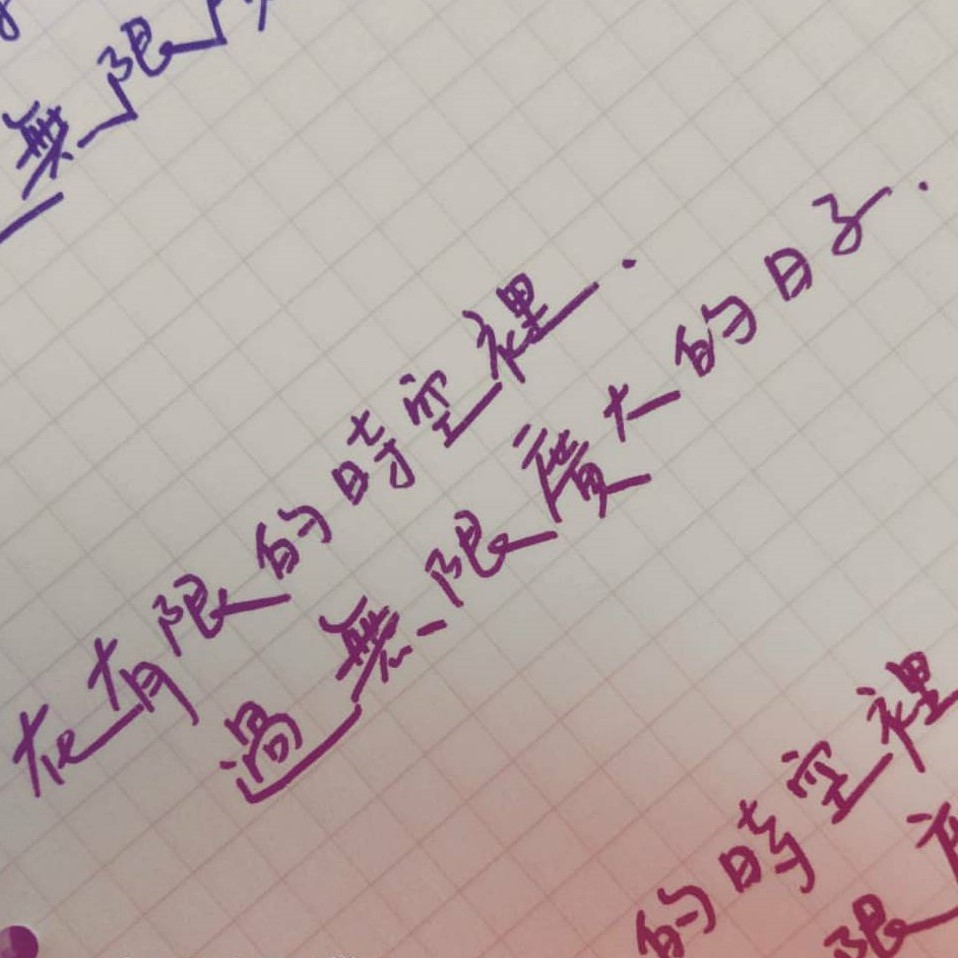 無限
在有限的時空裡.
過無限廣大的日子.
的時空裡
限